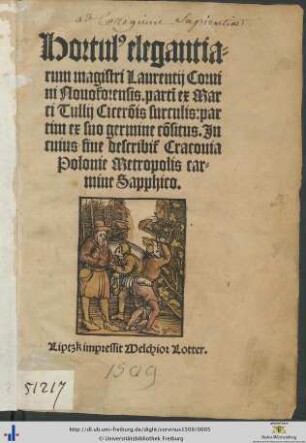 ad Collegium Sapientiae
Hortul⁹ elegantia-
rum magistri Laurentij Corui
ni Nouoforensis. partī ex Mar
ci Tullij Cicerōis surculis: par
tim ex suo germine cōsitus. In
cuius fine describit͛ Cracouia
Polonie Metropolis car-
mine Sapphico.
Liptzk impressit Melchior Lotter.
1509
51217
http://dl.ub.uni-freiburg.de/diglit/corvinus1509/0005
© Universitätsbibliothek Freiburg